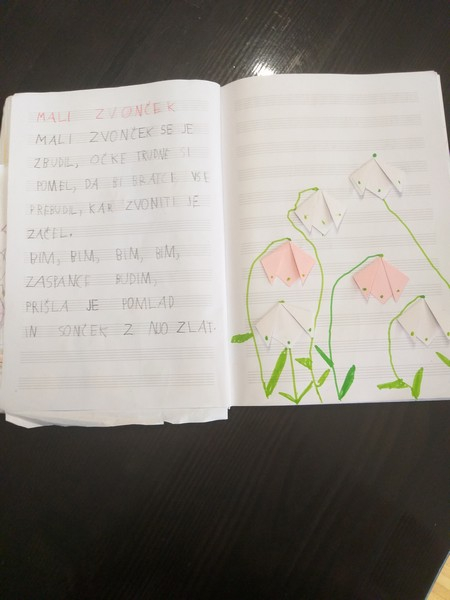 MALI ZVONČEK
MALI ZVONČEK SE JE
ZBUDIL, OČKE TRUDNE SI
POMEL, DA BI BRATCE VSE
PREBUDIL, KAR ZVONITI JE
ZAČEL.
BIM, BIM, BIM, BIM,
ZASPANCE BUDIM,
PRIŠLA JE POMLAD
IN SONČEK Z NJO ZLAT.